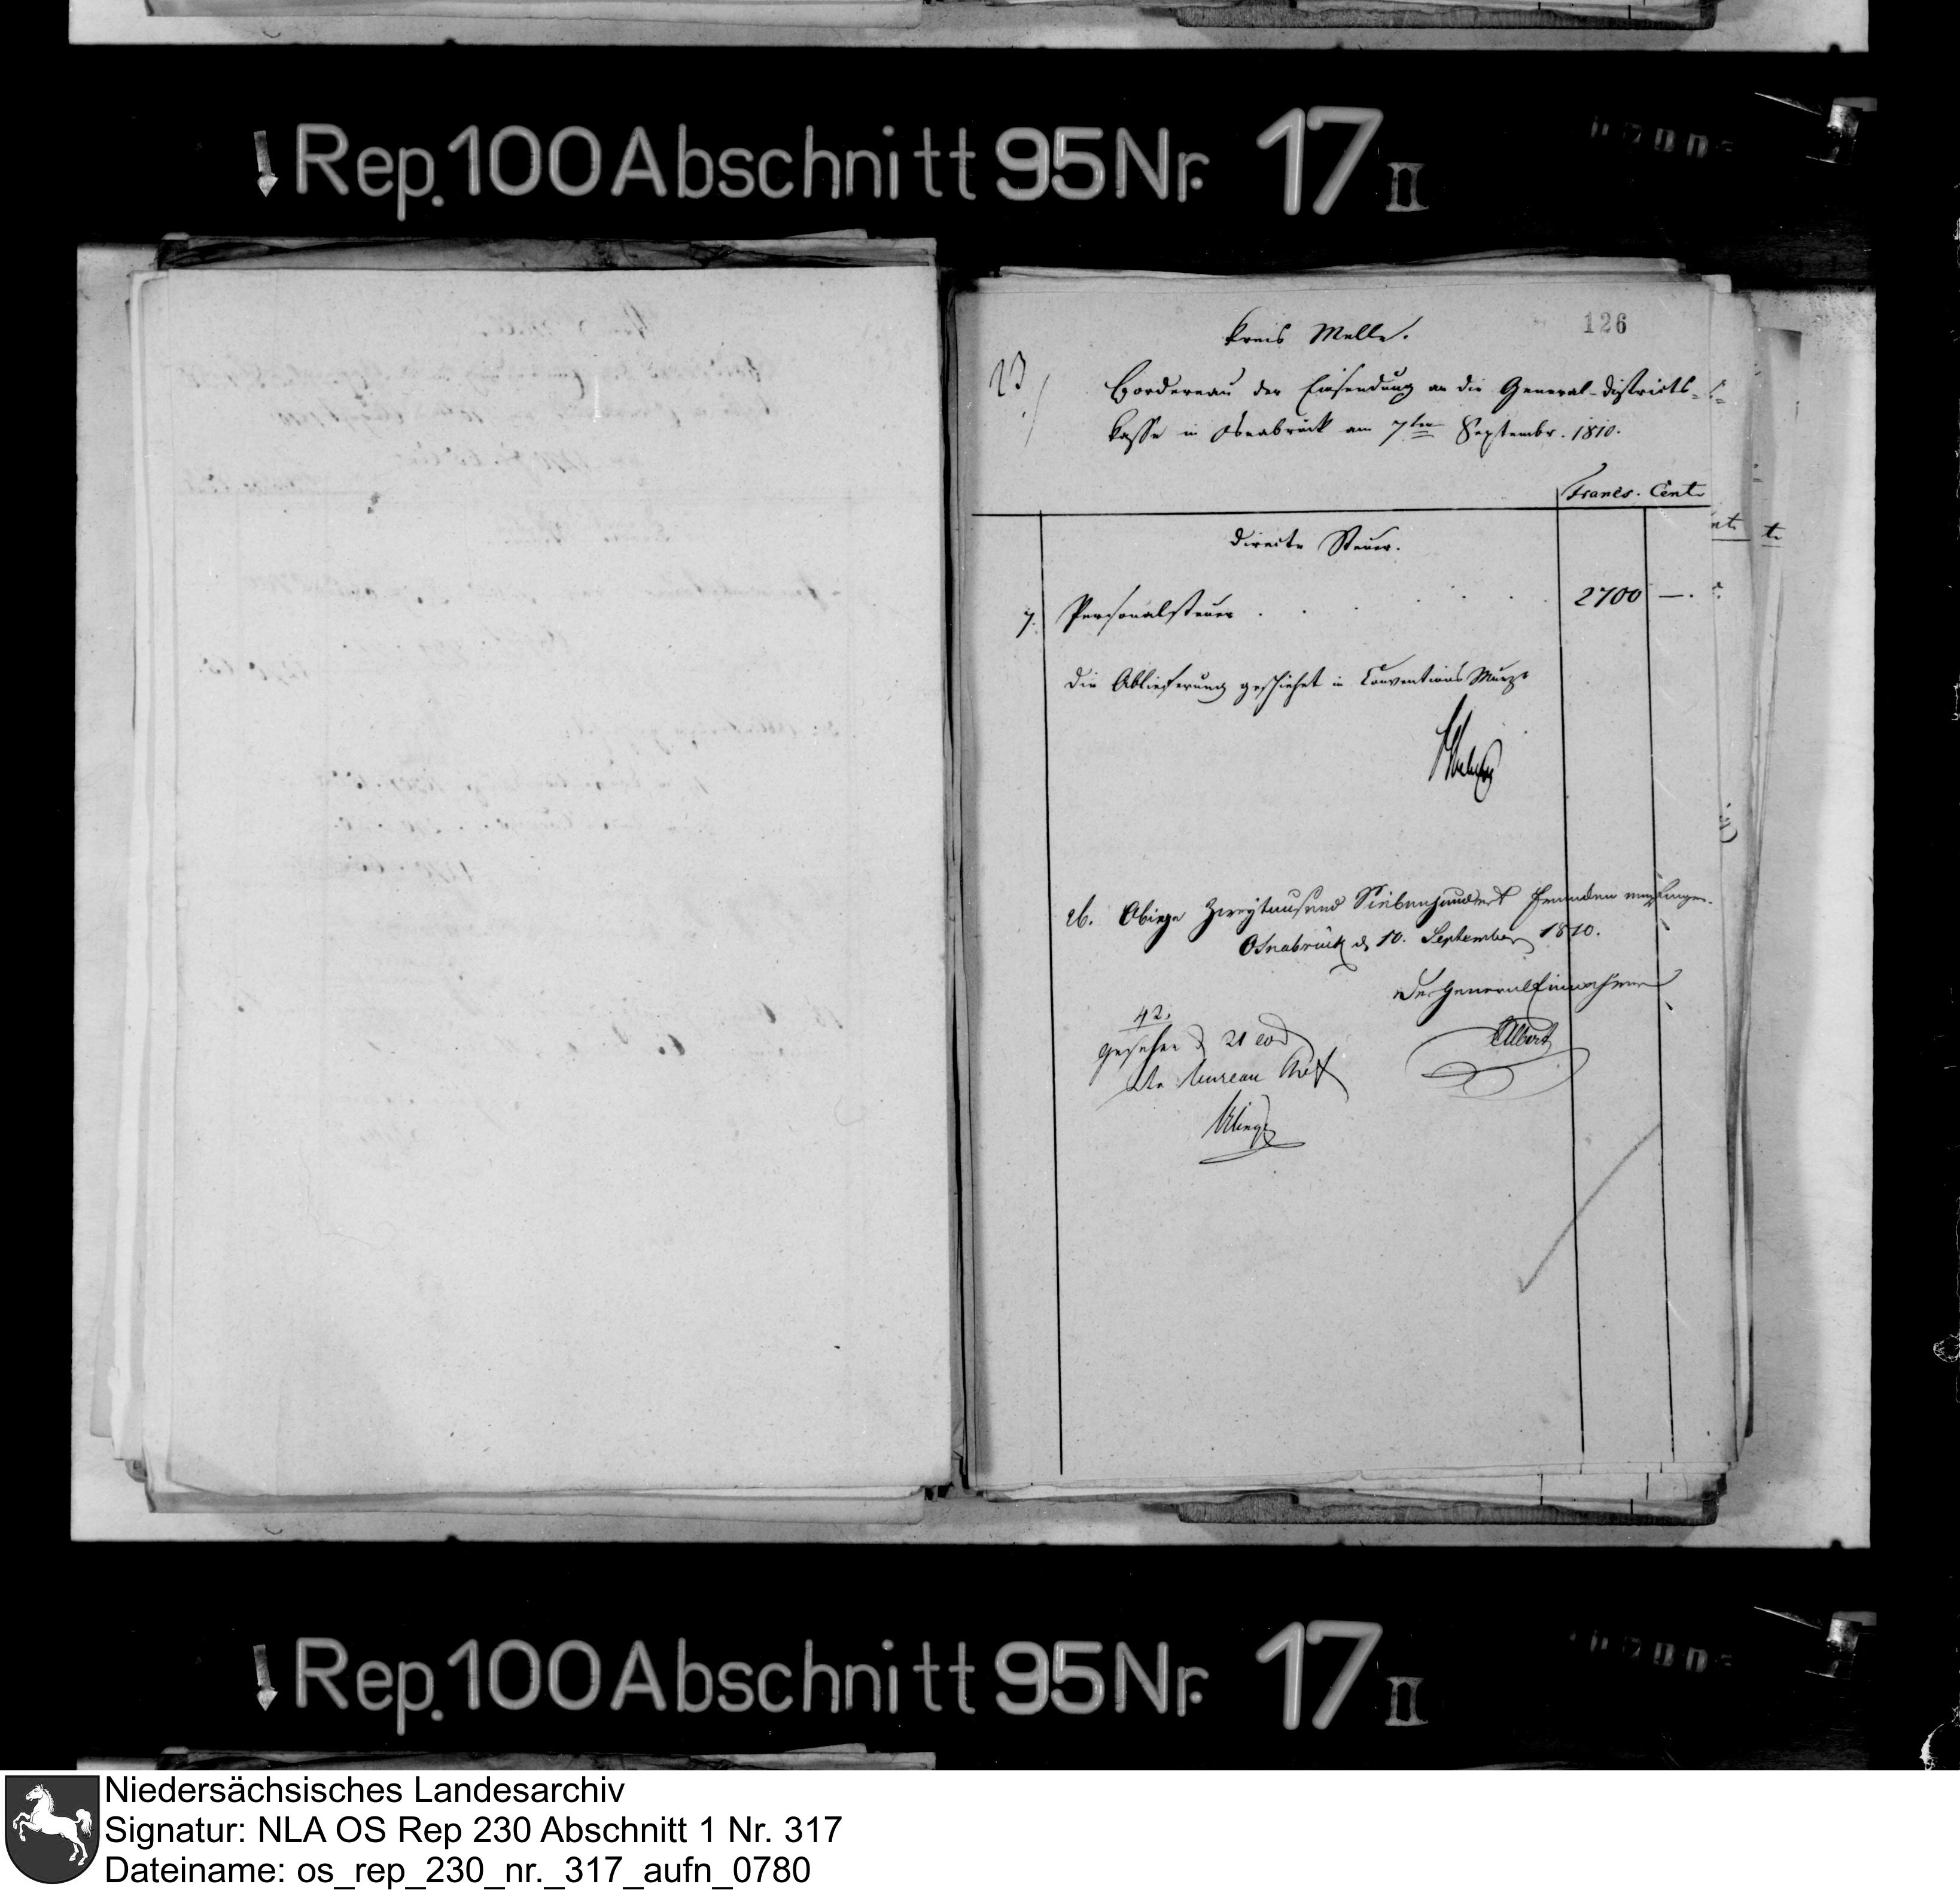 Rep. 100 Abschnitt 95 Nr. 17 II
126
Kreis Melle.
23
Bordereau der Einsendung an die General-Districts-
Casse in Osnabrück am 7ten Septembr. 1810.
Francs. Cent.
Directe Steuer.
7. Personalsteuer . . . . . . 2700 —.
Die Ablieferung geschiehet in Conventions Münze
Obige Zweytausend Siebenhundert Franken empfangen.
Osnabrück d 10. September 1810.
Der General Einnehmer
Albert
42.
gesehen d 21 eod
Le bureau Chef
Rep. 100 Abschnitt 95 Nr. 17 II
Niedersächsisches Landesarchiv
Signatur: NLA OS Rep 230 Abschnitt 1 Nr. 317
Dateiname: os_rep_230_nr._317_aufn_0780